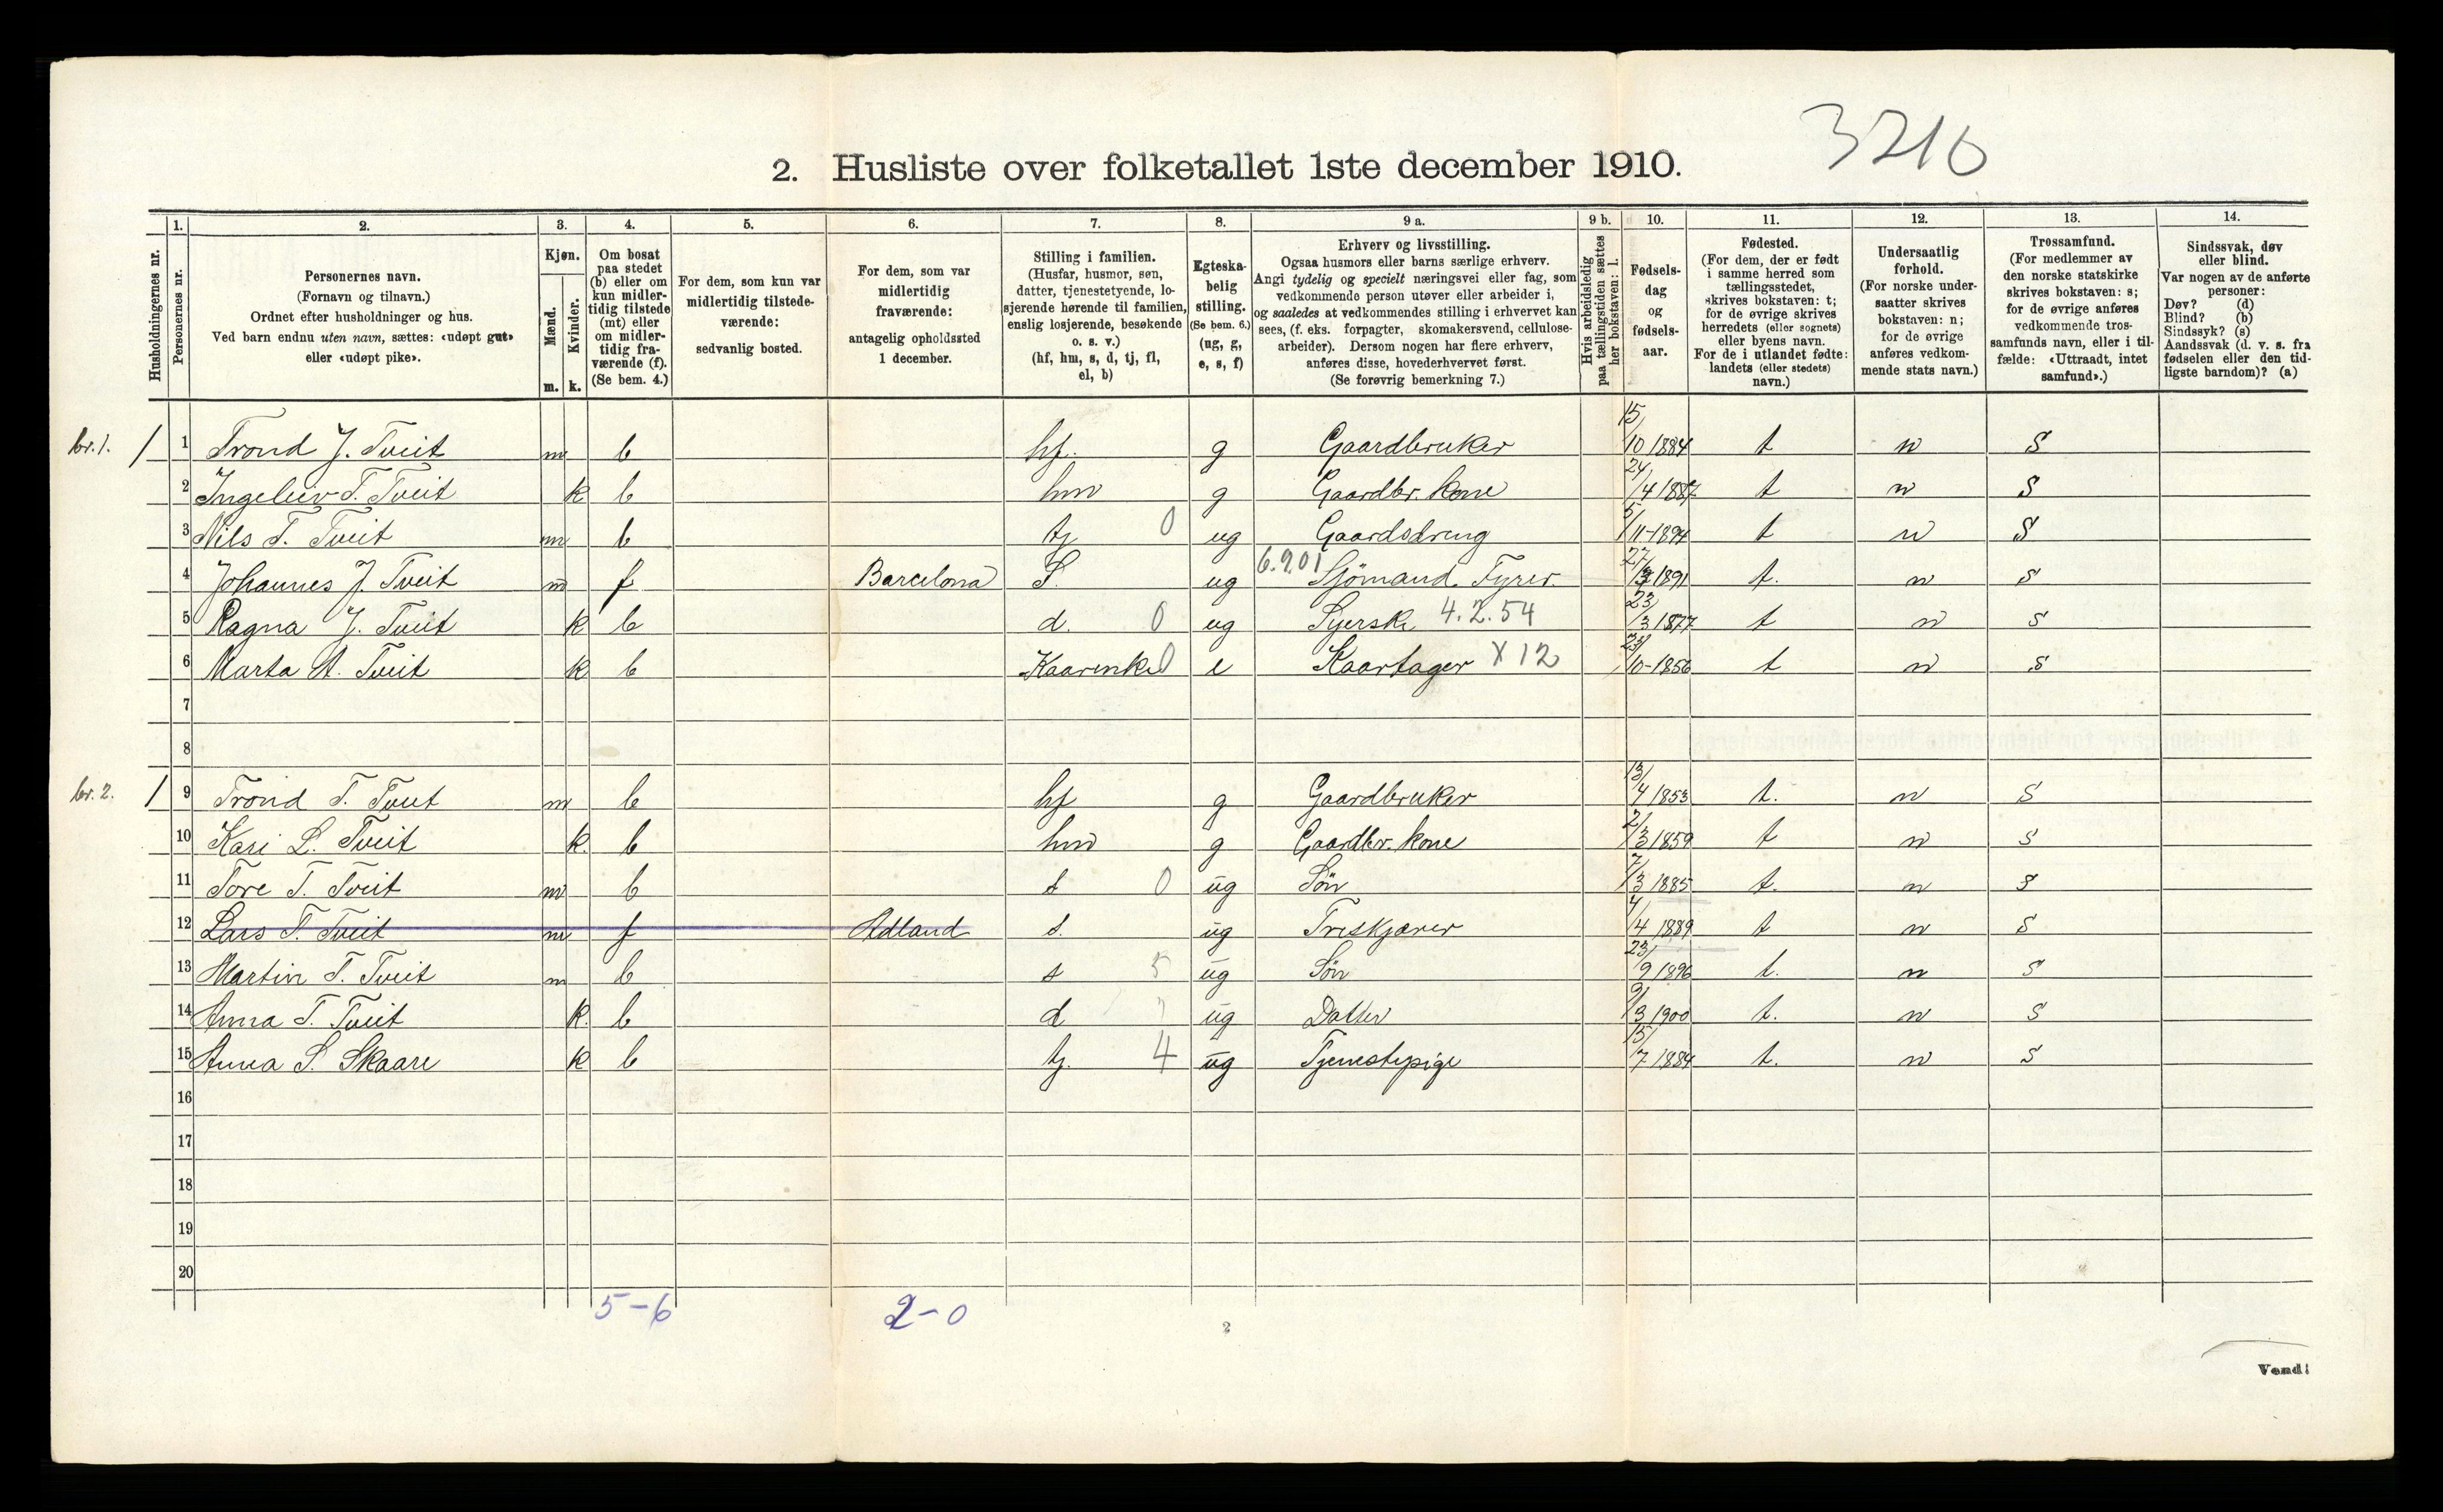 3210
2. Husliste over folketallet 1ste december 1910.
1. 2. 3. 4. 5. 6. 7. 8. 9 a. 9 b. 10. 11. 12. 13. 14.
Husholdningernes nr.
Personernes nr.
Personernes navn.
(Fornavn og tilnavn.)
Ordnet efter husholdninger og hus.
Ved barn endnu uten navn, sættes: «udøpt gut»
eller «udøpt pike».
Kjøn.
Mænd.
m.
Kvinder.
k.
Om bosat
paa stedet
(b) eller om
kun midler-
tidig tilstede
(mt) eller
om midler-
tidig fra-
værende (f).
(Se bem. 4.)
For dem, som kun var
midlertidig tilstede-
værende:
sedvanlig bosted.
For dem, som var
midlertidig
fraværende:
antagelig opholdssted
1 december.
Stilling i familien.
(Husfar, husmor, søn,
datter, tjenestetyende, lo-
sjerende hørende til familien,
enslig losjerende, besøkende
o. s. v.)
(hf, hm, s, d, tj, fl,
el, b)
Egteska-
belig
stilling.
(Se bem. 6.)
(ug, g,
e, s, f)
Erhverv og livsstilling.
Ogsaa husmors eller barns særlige erhverv.
Angi tydelig og specielt næringsvei eller fag, som
vedkommende person utøver eller arbeider i,
og saaledes at vedkommendes stilling i erhvervet kan
sees, (f. eks. forpagter, skomakersvend, cellulose-
arbeider). Dersom nogen har flere erhverv,
anføres disse, hovederhvervet først.
(Se forøvrig bemerkning 7.)
Hvis arbeidsledig
paa tællingstiden sættes
her bokstaven: l.
Fødsels-
dag
og
fødsels-
aar.
Fødested.
(For dem, der er født
i samme herred som
tællingsstedet,
skrives bokstaven: t;
for de øvrige skrives
herredets (eller sognets)
eller byens navn.
For de i utlandet fødte:
landets (eller stedets)
navn.)
Undersaatlig
forhold.
(For norske under-
saatter skrives
bokstaven: n;
for de øvrige
anføres vedkom-
mende stats navn.)
Trossamfund.
(For medlemmer av
den norske statskirke
skrives bokstaven: s;
for de øvrige anføres
vedkommende tros-
samfunds navn, eller i til-
fælde: «Uttraadt, intet
samfund».)
Sindssvak, døv
eller blind.
Var nogen av de anførte
personer:
Døv? (d)
Blind? (b)
Sindssyk? (s)
Aandssvak (d. v. s. fra
fødselen eller den tid-
ligste barndom)? (a)
br. 1. / 1 Trond J. Tveit m b hf. g Gaardbruker 15/10 1884 t n S
2 Ingeleiv T. Tveit k b hm g Gaardbr. kone 24/4 1887 t n S
3 Nils T. Tveit m b tj 0 ug Gaardsdreng 5/11-1894 t n S
4 Johannes J. Tveit m f Barcelona S. ug 6.901 Sjömand Fyrer 27/ 1891 t. n S
5 Ragna J. Tveit k b d. 0 ug Syerske 4.2.54 23/3 1877 t n S
6 Marta A. Tveit k b Kaarenke 0 e Kaartager X 12 23/10-1856 t n S
7
8
br. 2. / 9 Trond T. Tveit m b hf g Gaardbruker 13/4 1853 t. n S
10 Kari L. Tveit k. b hm g Gaardbr. kone 2/3 1859 t n S
11 Tore T. Tveit m b s 0 ug Sön 7/3 1885 t. n S
12 Lars T. Tveit m f Adland s. ug Treskjærer 4/4 1889 t n S
13 Martin T. Tveit m b s 5 ug Sön 23/9 1896 t. n S
14 Anna T. Tveit k. b d ug Datter 9/3 1900 t. n S
15 Anna S. Skaare k b tj. 4 ug Tjenestepige 15/7 1884 t. n S
16
17
18
19
20
5-6 2-0
2
Vend!